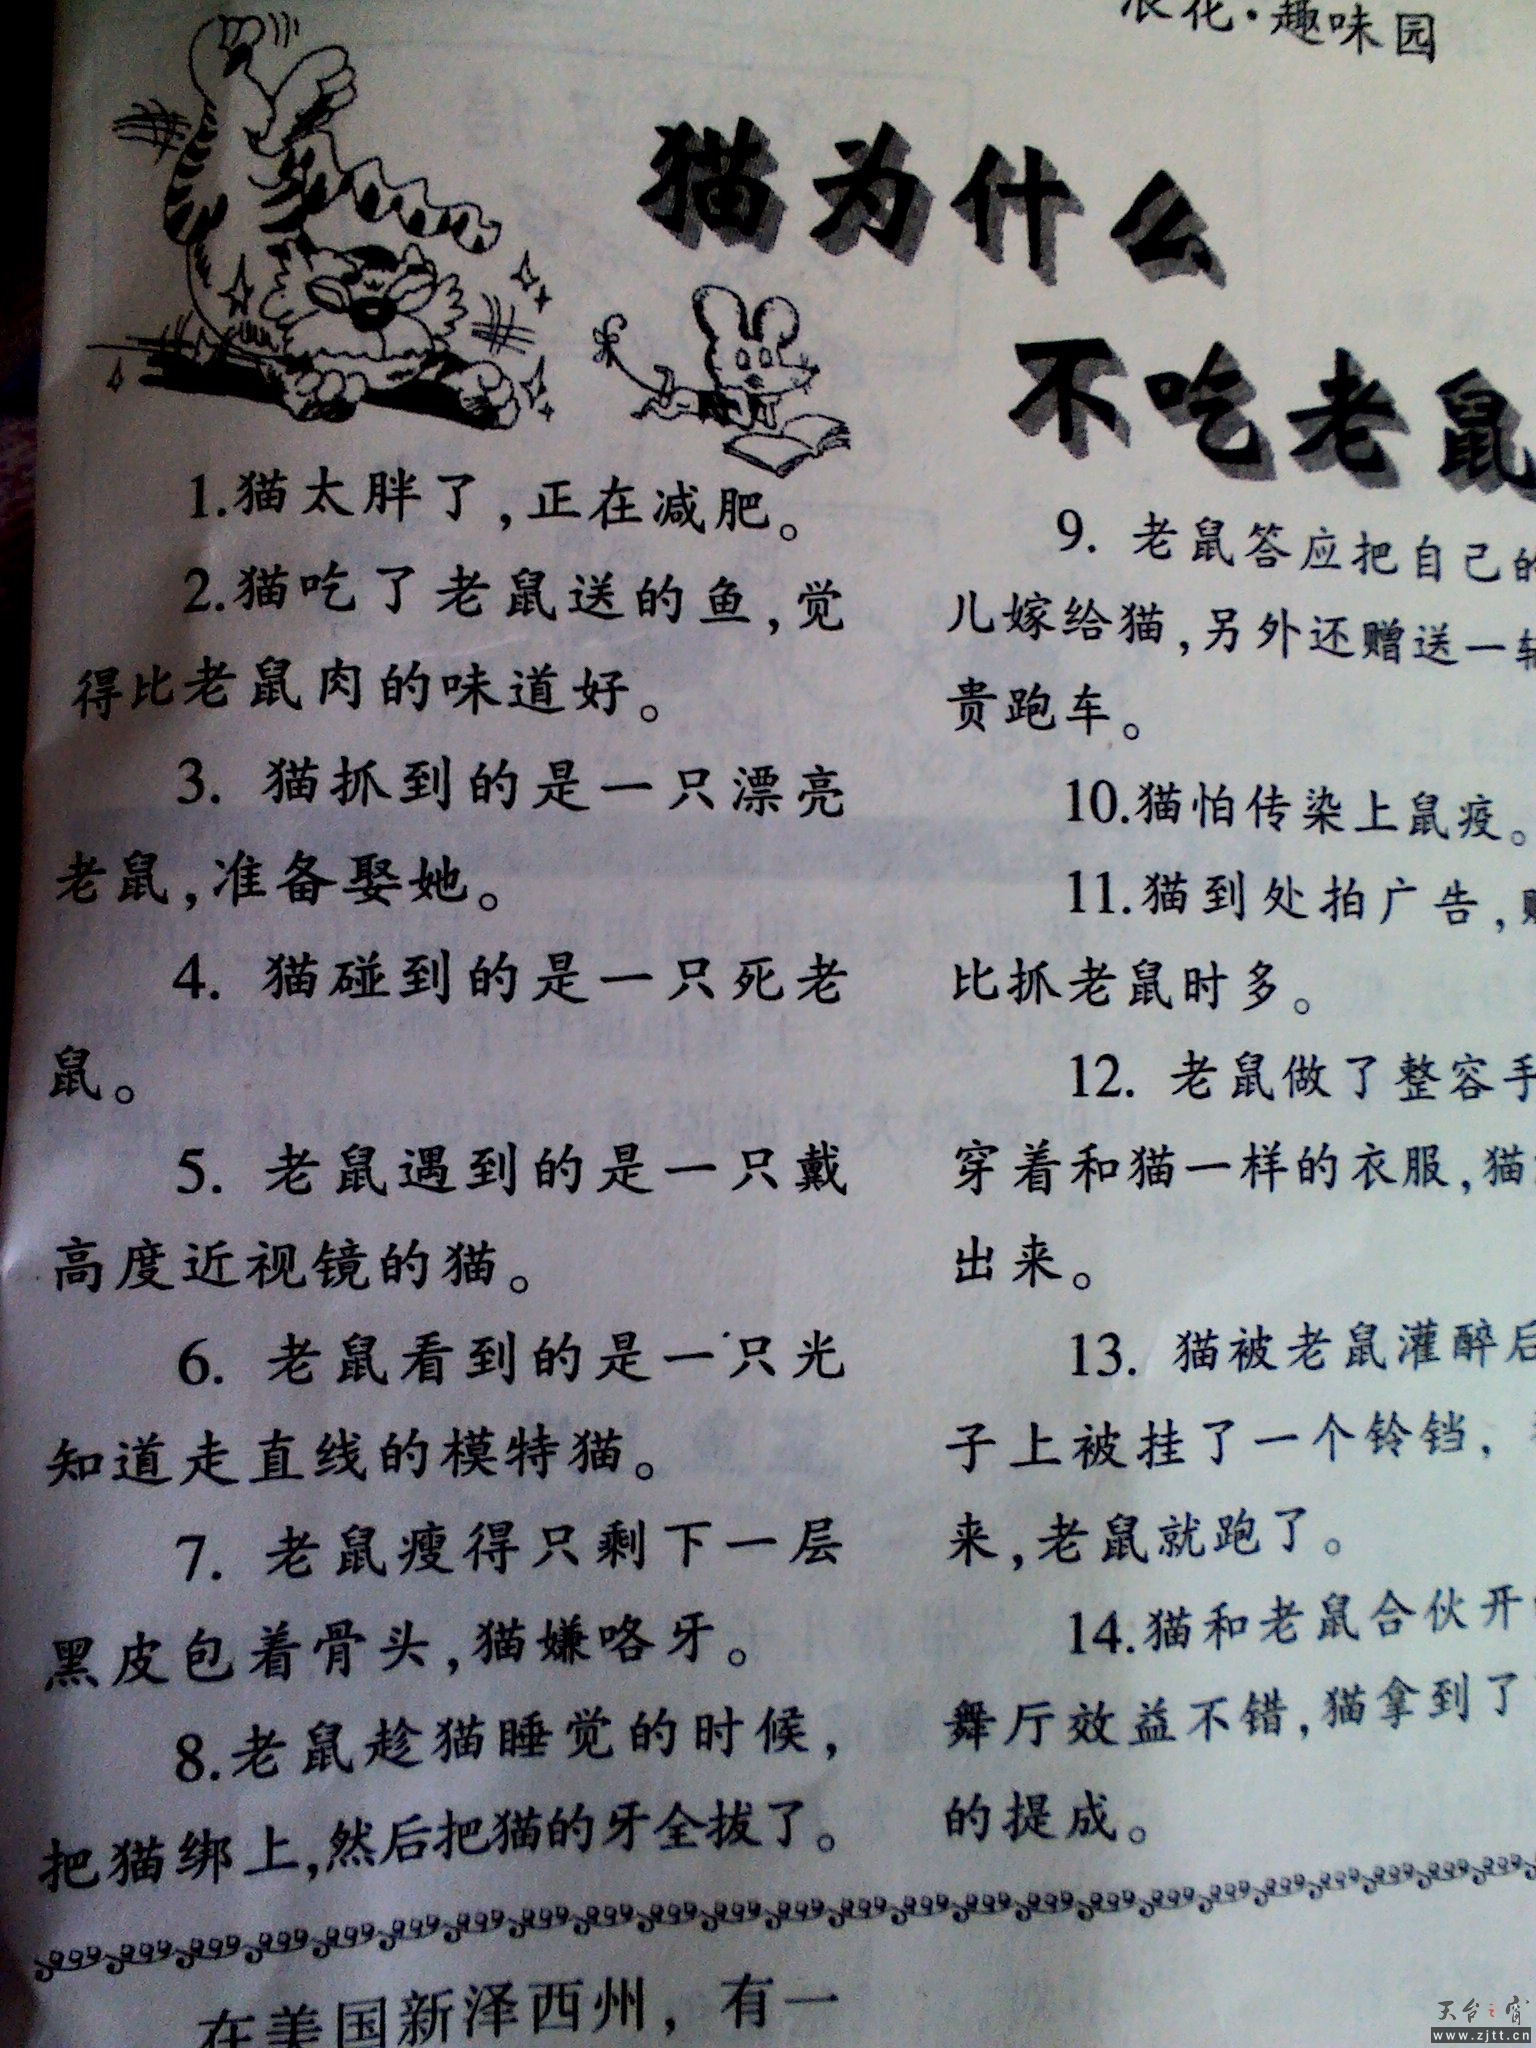 浪花·趣味园
猫为什么
不吃老鼠
1.猫太胖了,正在减肥。
2.猫吃了老鼠送的鱼,觉
得比老鼠肉的味道好。
3. 猫抓到的是一只漂亮
老鼠,准备娶她。
4. 猫碰到的是一只死老
鼠。
5. 老鼠遇到的是一只戴
高度近视镜的猫。
6. 老鼠看到的是一只光
知道走直线的模特猫。
7. 老鼠瘦得只剩下一层
黑皮包着骨头,猫嫌咯牙。
8.老鼠趁猫睡觉的时候,
把猫绑上,然后把猫的牙全拔了。
9. 老鼠答应把自己的
儿嫁给猫,另外还赠送一
贵跑车。
10.猫怕传染上鼠疫。
11.猫到处拍广告,
比抓老鼠时多。
12. 老鼠做了整容手
穿着和猫一样的衣服,猫
出来。
13. 猫被老鼠灌醉后
子上被挂了一个铃铛,
来,老鼠就跑了。
14.猫和老鼠合伙开
舞厅效益不错,猫拿到了
的提成。
在美国新泽西州，有一
天台之窗
www.zjtt.cn